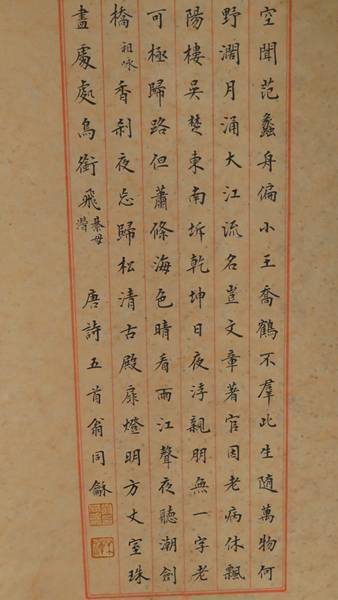 空聞范蠡舟偏小王喬鶴不羣此生隨萬物何
野濶月涌大江流名豈文章著官因老病休飄
陽樓吳楚東南坼乾坤日夜浮親朋無一字老
可極歸路但蕭條海色晴看雨江聲夜聽潮劍
橋祖咏香刹夜忘歸松清古殿扉燈明方丈室珠
盡處處鳥銜飛綦毋潛 唐詩五首翁同龢